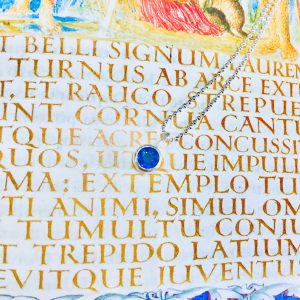 T BELLI SIGNUM LAUREN
TURNUS AB ARCE EXT
T, ET RAUCO STREPUE
UNT CORNUA CANT
TQUE ACRE CONCUSSIT
QUOS, UTQUE IMPULI
MA: EXTEMPLO TU
TI ANIMI, SIMUL OM
TUMULTU CONIU
ET TREPIDO LATIUM
EVITQUE IUVENTU